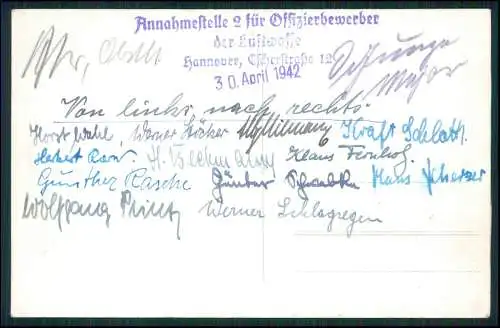 Annahmestelle 2 für Offizierbewerber
der Luftwaffe
Hannover, Escherstraße 12
30. April 1942
Major
Von links nach rechts:
Horst Wahl, Werner Stöcker Kraft Schlott.
Herbert H. Bechmann Klaus
Günther Rasche Günter Schwabke Hans Scherzer
Wolfgang Printz Werner Schlagregen